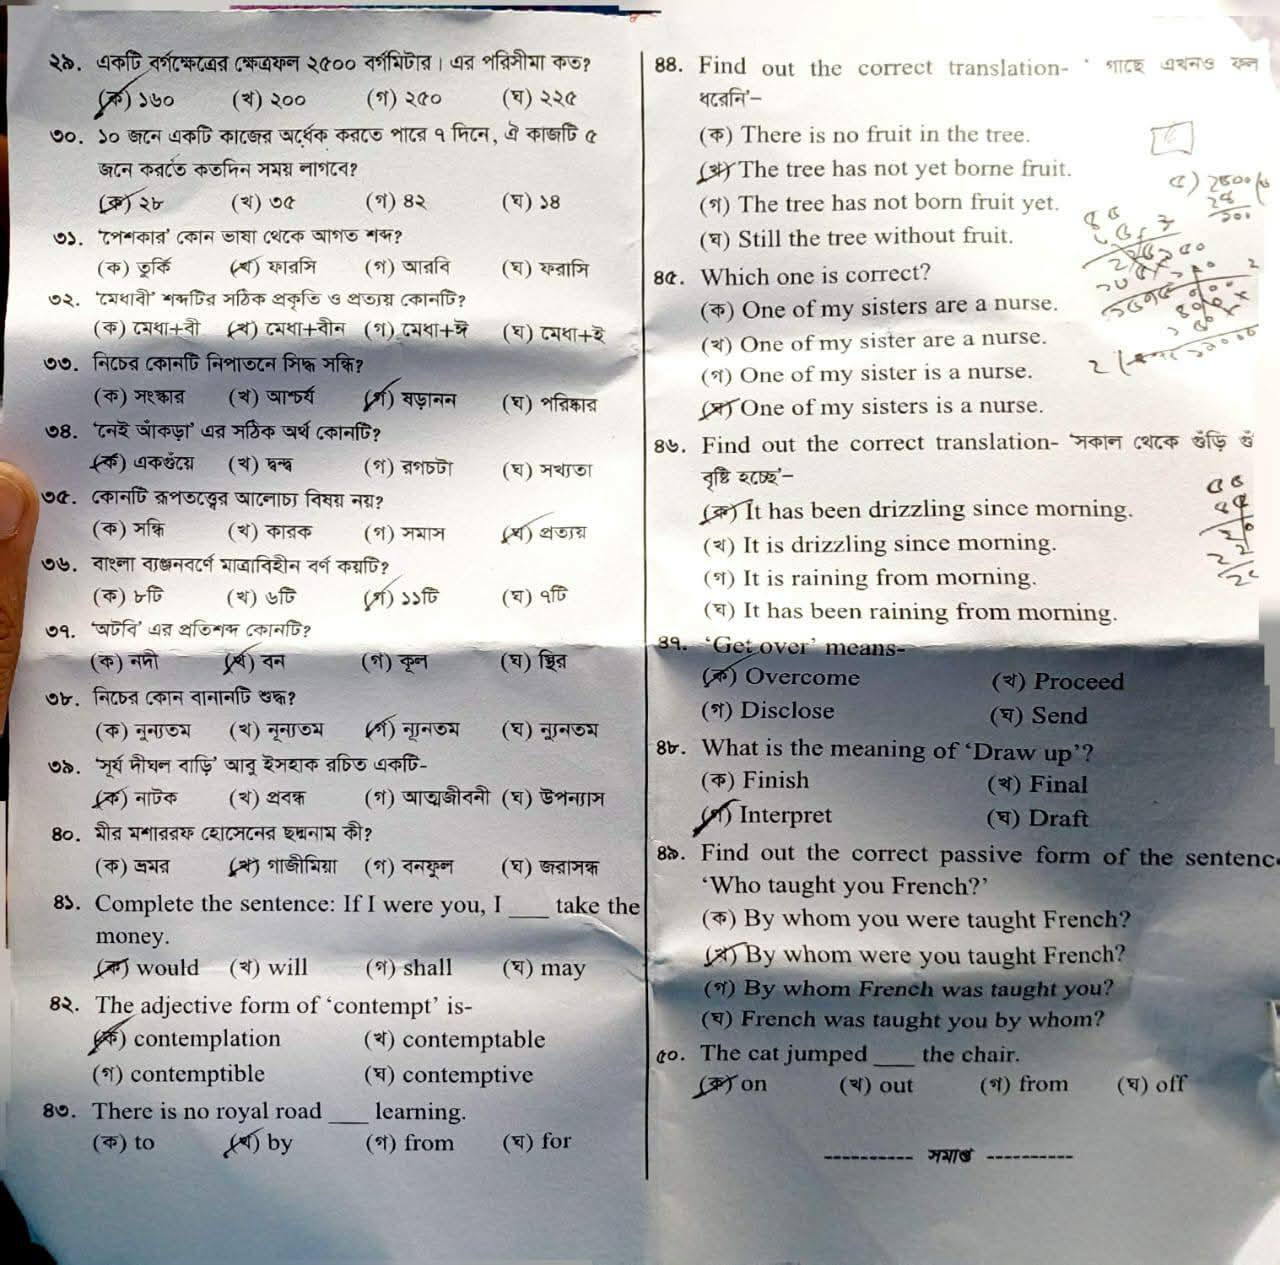 ২৯. একটি বর্গক্ষেত্রের ক্ষেত্রফল ২৫০০ বর্গমিটার। এর পরিসীমা কত?
(ক) ১৬০ (খ) ২০০ (গ) ২৫০ (ঘ) ২২৫
৩০. ১০ জনে একটি কাজের অর্ধেক করতে পারে ৭ দিনে, ঐ কাজটি ৫
জনে করতে কতদিন সময় লাগবে?
(ক) ২৮ (খ) ৩৫ (গ) ৪২ (ঘ) ১৪
৩১. 'পেশকার' কোন ভাষা থেকে আগত শব্দ?
(ক) তুর্কি (খ) ফারসি (গ) আরবি (ঘ) ফরাসি
৩২. 'মেধাবী' শব্দটির সঠিক প্রকৃতি ও প্রত্যয় কোনটি?
(ক) মেধা+বী (খ) মেধা+বীন (গ) মেধা+ঈ (ঘ) মেধা+ই
৩৩. নিচের কোনটি নিপাতনে সিদ্ধ সন্ধি?
(ক) সংস্কার (খ) আশ্চর্য (গ) ষড়ানন (ঘ) পরিষ্কার
৩৪. 'নেই আঁকড়া' এর সঠিক অর্থ কোনটি?
(ক) একগুঁয়ে (খ) দ্বন্দ্ব (গ) রগচটা (ঘ) সখ্যতা
৩৫. কোনটি রূপতত্ত্বের আলোচ্য বিষয় নয়?
(ক) সন্ধি (খ) কারক (গ) সমাস (ঘ) প্রত্যয়
৩৬. বাংলা ব্যঞ্জনবর্ণে মাত্রাবিহীন বর্ণ কয়টি?
(ক) ৮টি (খ) ৬টি (গ) ১১টি (ঘ) ৭টি
৩৭. 'অটবি' এর প্রতিশব্দ কোনটি?
(ক) নদী (খ) বন (গ) কূল (ঘ) স্থির
৩৮. নিচের কোন বানানটি শুদ্ধ?
(ক) নূন্যতম (খ) নূন্যতম (গ) ন্যূনতম (ঘ) ন্যুনতম
৩৯. 'সূর্য দীঘল বাড়ি' আবু ইসহাক রচিত একটি-
(ক) নাটক (খ) প্রবন্ধ (গ) আত্মজীবনী (ঘ) উপন্যাস
৪০. মীর মশাররফ হোসেনের ছদ্মনাম কী?
(ক) ভ্রমর (খ) গাজীমিয়া (গ) বনফুল (ঘ) জরাসন্ধ
৪১. Complete the sentence: If I were you, I ____ take the
money.
(ক) would (খ) will (গ) shall (ঘ) may
৪২. The adjective form of 'contempt' is-
(ক) contemplation (খ) contemptable
(গ) contemptible (ঘ) contemptive
৪৩. There is no royal road ____ learning.
(ক) to (খ) by (গ) from (ঘ) for
৪৪. Find out the correct translation- ' গাছে এখনও ফল
ধরেনি'–
(ক) There is no fruit in the tree.
(খ) The tree has not yet borne fruit.
(গ) The tree has not born fruit yet.
(ঘ) Still the tree without fruit.
৪৫. Which one is correct?
(ক) One of my sisters are a nurse.
(খ) One of my sister are a nurse.
(গ) One of my sister is a nurse.
(ঘ) One of my sisters is a nurse.
৪৬. Find out the correct translation- 'সকাল থেকে গুঁড়ি গুঁ
বৃষ্টি হচ্ছে'–
(ক) It has been drizzling since morning.
(খ) It is drizzling since morning.
(গ) It is raining from morning.
(ঘ) It has been raining from morning.
৪৭. 'Get over' means-
(ক) Overcome (খ) Proceed
(গ) Disclose (ঘ) Send
৪৮. What is the meaning of 'Draw up'?
(ক) Finish (খ) Final
(গ) Interpret (ঘ) Draft
৪৯. Find out the correct passive form of the sentenc
'Who taught you French?'
(ক) By whom you were taught French?
(খ) By whom were you taught French?
(গ) By whom French was taught you?
(ঘ) French was taught you by whom?
৫০. The cat jumped ____ the chair.
(ক) on (খ) out (গ) from (ঘ) off
---------- সমাপ্ত ----------